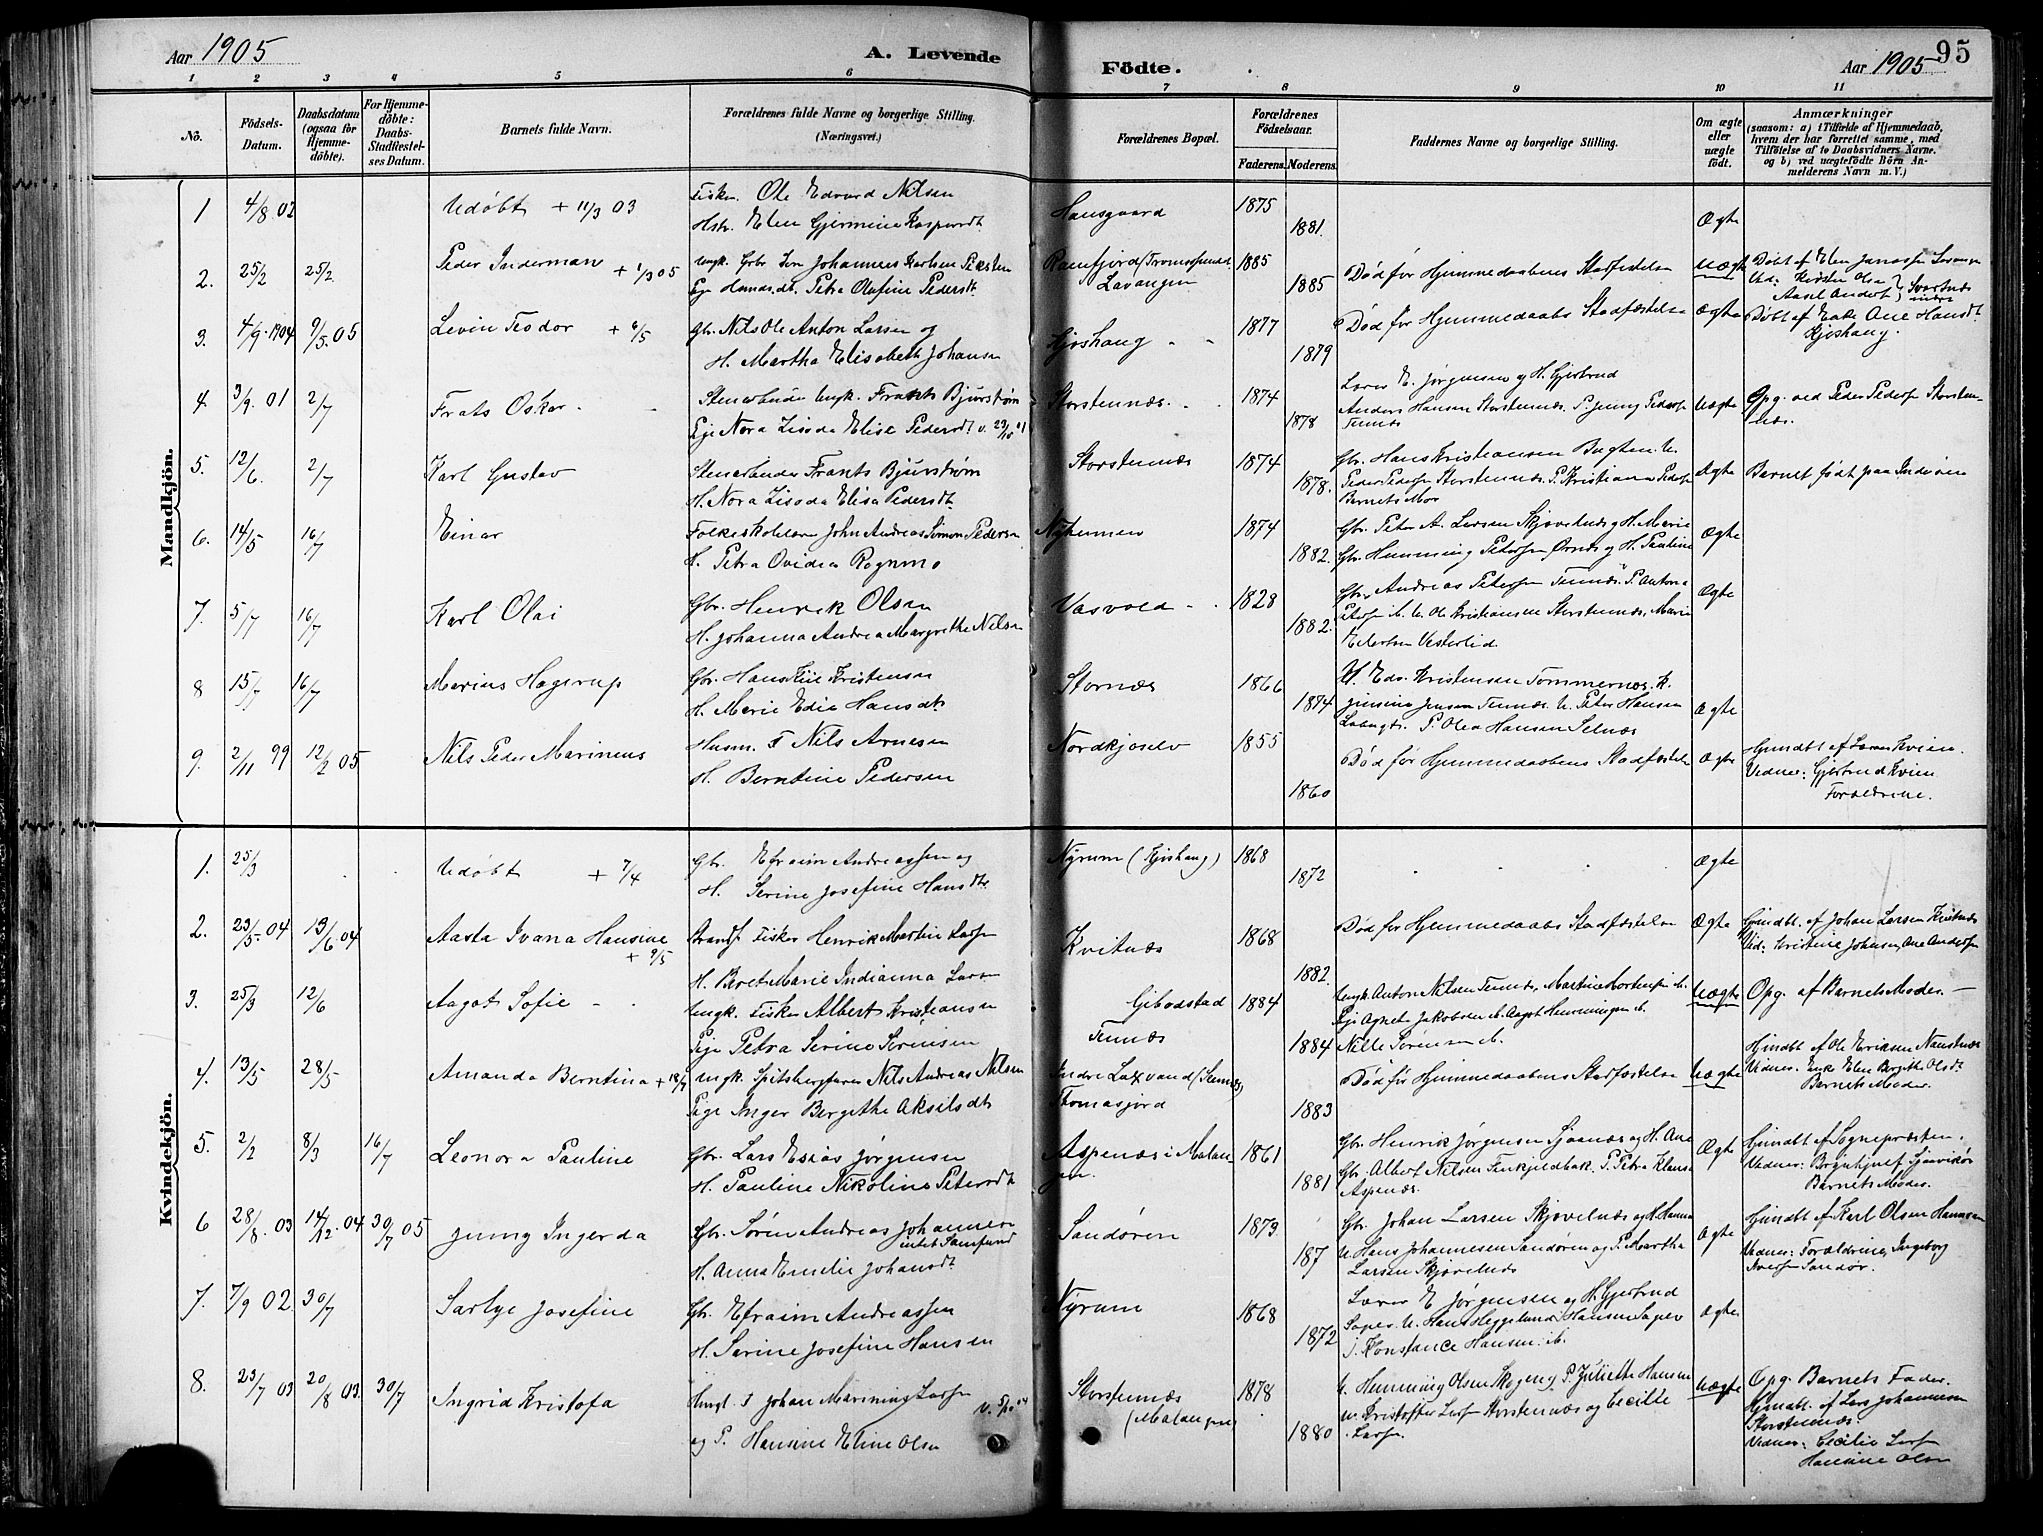 Aar 1905
A. Levende
Födte.
Aar 1905
95
1 2 3 4 5 6 7 8 9 10 11
Nô.
Födsels-
Datum.
Daabsdatum
(ogsaa for
Hjemme-
döbte).
For Hjemme-
döbte:
Daabs-
Stadfæstel-
ses Datum.
Barnets fulde Navn.
Forældrenes fulde Navne og borgerlige Stilling.
(Næringsvei.)
Forældrenes Bopæl.
Forældrenes
Födselsaar.
Faderens. Moderens.
Faddernes Navne og borgerlige Stilling.
Om ægte
eller
uægte
födt.
Anmærkninger
(saasom: a) i Tilfælde af Hjemmedaab,
hvem der har forrettet samme, med
Tilföielse af to Daabsvidners Navne.
og b) ved uægtefödte Börn An-
melderens Navn m. V.)
Mandkjön.
1 4/8 02 Udøbt + 11/3 03 Fisker. Ole Edvard Nilsen
Hstr. Elen Gjermine Kaspersdt
Hansgaard 1875 1881. Ægte
2. 25/2 25/2 Peder Inderman + 1/3 05 Ungk. Gbr. Søn Johannes Karlsen
Pige Petra Olufine Pedersdt.
Ramfjord (Tromsøsund)
Lavangen 1885 1885 Død før Hjemmedaabens Stadfæstelse Uægte
Døbt af Elen Jensen Lavangen
Vid: Kirsten Olsen
3. 4/9 1904 9/5 05 Levin Teodor + 6/5 Gbr. Nils Ole Anton Larsen og
H. Martha Elisabeth Johansen
Kjøshaug 1877 1879 Død før Hjemmedaabs Stadfæstelse Ægte
Døbt af Enke Ane Hansdt.
Kjøshaug.
4. 3/9 01 2/7 Frats Oskar Stenarbeider Ungk. Frants Bjurstrøm
Pige Nora Lisoda Elise Pedersdt v. 23/10 01
Storstennæs 1874 1878
Lærer E. Jørgensen og H. Gjertrud
Anders Hansen Storstennæs. P. Jenny Peders
Tennæs
Uægte Opg. ved Peder Peders Storsten-
næs.
5. 12/6. 2/7 Karl Gustav Stenarbeider Frants Bjurstrøm
H. Nora Lisoda Elisa Pedersdt
Storstennæs 1874 1878.
Gbr. Hans Kristiansen Bugten U.
Peder Peders Storstennæs. P. Kristiana Peders
Barnets Mor
Ægte Barnet født paa Inderøen
6. 14/5 16/7 Einar Folkeskolelærer John Andreas Simon Pedersen
H. Petra Ovidia Rognmo
Nyheimen 1874 1882.
Gbr. Peter A. Larsen Skjævelnæs og H. Marie
Gbr. Hemming Petersen Ørnæs og H. Pauline
Ægte
7. 5/7 16/7 Karl Olai Gbr. Henrik Olsen
H. Johanna Andrea Margrethe Nilsen
Vasvold 1828 1882.
Gbr. Andreas Petersen Tennæs. P. Antona
Peters ib. U. Ole Kristiansen Storstennæs, Marie
Eilertsen Vesterlid
Ægte
8 15/7 16/7 Marius Hagerup Gbr. Hans Kiil Kristensen
H. Marie Edie Hansdt
Stornæs 1866 1874
U. Edv. Kristensen Tømmernæs. K.
Jensine Jensen Tennæs. U. Peter Hansen
P. Olea Hansen Selnæs
Ægte
9. 2/11 99 12/2 05 Nils Peder Marinius Husm. F Nils Arnesen
H. Berntine Pedersen
Nordkjoselv 1855 1860
Død før Hjemmedaabens Stadfæstelse Ægte
Hjemdbt af Lærer Kvien.
Vidner: Gjertrud Kvien
Forældrene.
Kvindekjön.
1. 25/3 Udøbt + 7/4 Gbr. Efraim Andreassen og
H. Serine Josefine Hansdt.
Nyrum (Kjøshaug) 1868 1872 Ægte
2. 23/5 04 13/6 04 Aasta Ivana Hansine
+ 9/5
Strands. Fisker Henrik Martin Lars
H. Beret Marie Indianna Larsen
Kvitnæs 1868 1882.
Død før Hjemmedaabs Stadfæstelse Ægte
Hjemdbt. af Johan Larsen Kvitnæs
Vid: Kristine Johnsen, Ane Anders
3. 25/3 12/6 Aagot Sofie Ungk. Fisker Albert Kristiansen
Pige Petra Serine Sørensen
Gibostad
Tennæs 1884 1884
Ungk. Anton Nilsen Tennæs, Martine Mortens ib.
Pige Agnete Jakobsen ib. Aagot Henningsen ib.
Nille Sørensen ib.
Uægte Opg. af Barnets Moder. —
4. 13/5 28/5 Amanda Berntina + 18/7 Ungk. Spitsbergfarer Nils Andreas Nilsen
Pige Inger Bergethe Akselsdt
Indre Laxvand
Thomasjord 1883
Død før Hjemmedaabens Stadfæstelse Uægte
Hjemdbt af Ole Eriksen Naustnæs
Vidner: Enke Elen Bergethe Olsdt.
Barnets Moder.
5. 2/2 8/3 16/7 Leonora Pauline Gbr. Lars Esias Jørgensen
H. Pauline Nikoline Petersdt
Aspenæs i Malan-
gen. 1861 1881
Gbr. Henrik Jørgensen Sjaanæs og H. Ane
Gbr. Albert Nilsen Finkjeldbak. P. Petra Klaus
Aspenæs.
Ægte Hjemdbt af Sognepræsten.
Barnets Moder.
6 28/8 03 14/12 04 30/7 05 Jenny Ingerda Gbr. Søren Andreas Johannesen
intet Samfund
H. Anna Emilie Johansdt
Sandøren 1873 187
Gbr. Johan Larsen Skjævelnæs og H. Hanna
U. Hans Johannesen Sandøren og P. Martha
Larsen Skjævelnæs
Ægte Hjemdbt af Karl Olsen
Vidner: Forældrene, Ingeborg
Iversen Sandør.
7. 7/9 02 30/7 Sarlye Josefine Gbr. Efraim Andreassen
H. Serine Josefine Hansen
Nyrum 1868 1872
Lærer E. Jørgensen og H. Gjertrud
U. Hans Heggelund Hansen
P. Konstance Hansen ib.
Ægte
8. 23/7 03 20/8 03. 30/7 Ingrid Kristofa Ungk. F Johan Marinius Lars
og P. Hansine Eline Olsen
Storstennæs
(Malangen) 1878 1880
U. Hemming Olsen Skogen, P. Juliette Hansen
U. Kristoffer Lars Storstennæs og Cecilie
Lars.
Uægte Opg. Barnets Fader.
Hjemdbt. af Lars Johannesen
Storstennæs.
Vidner: Cecilie Lars
Hansine Olsen